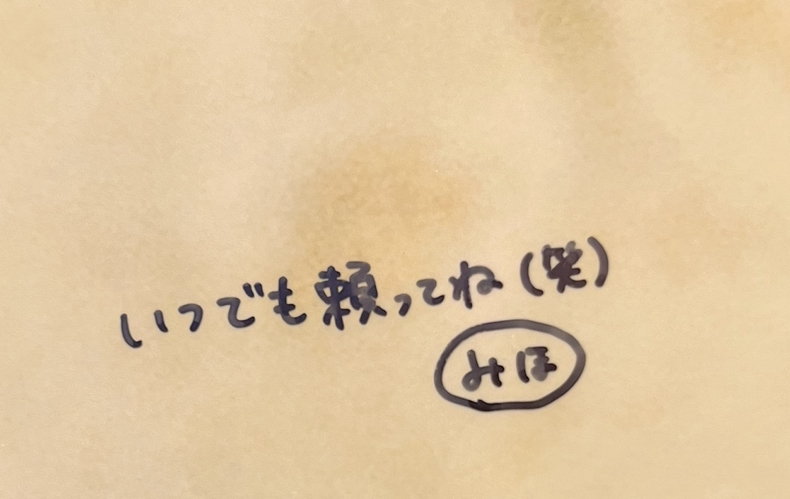 いつでも頼ってね(笑)
みほ